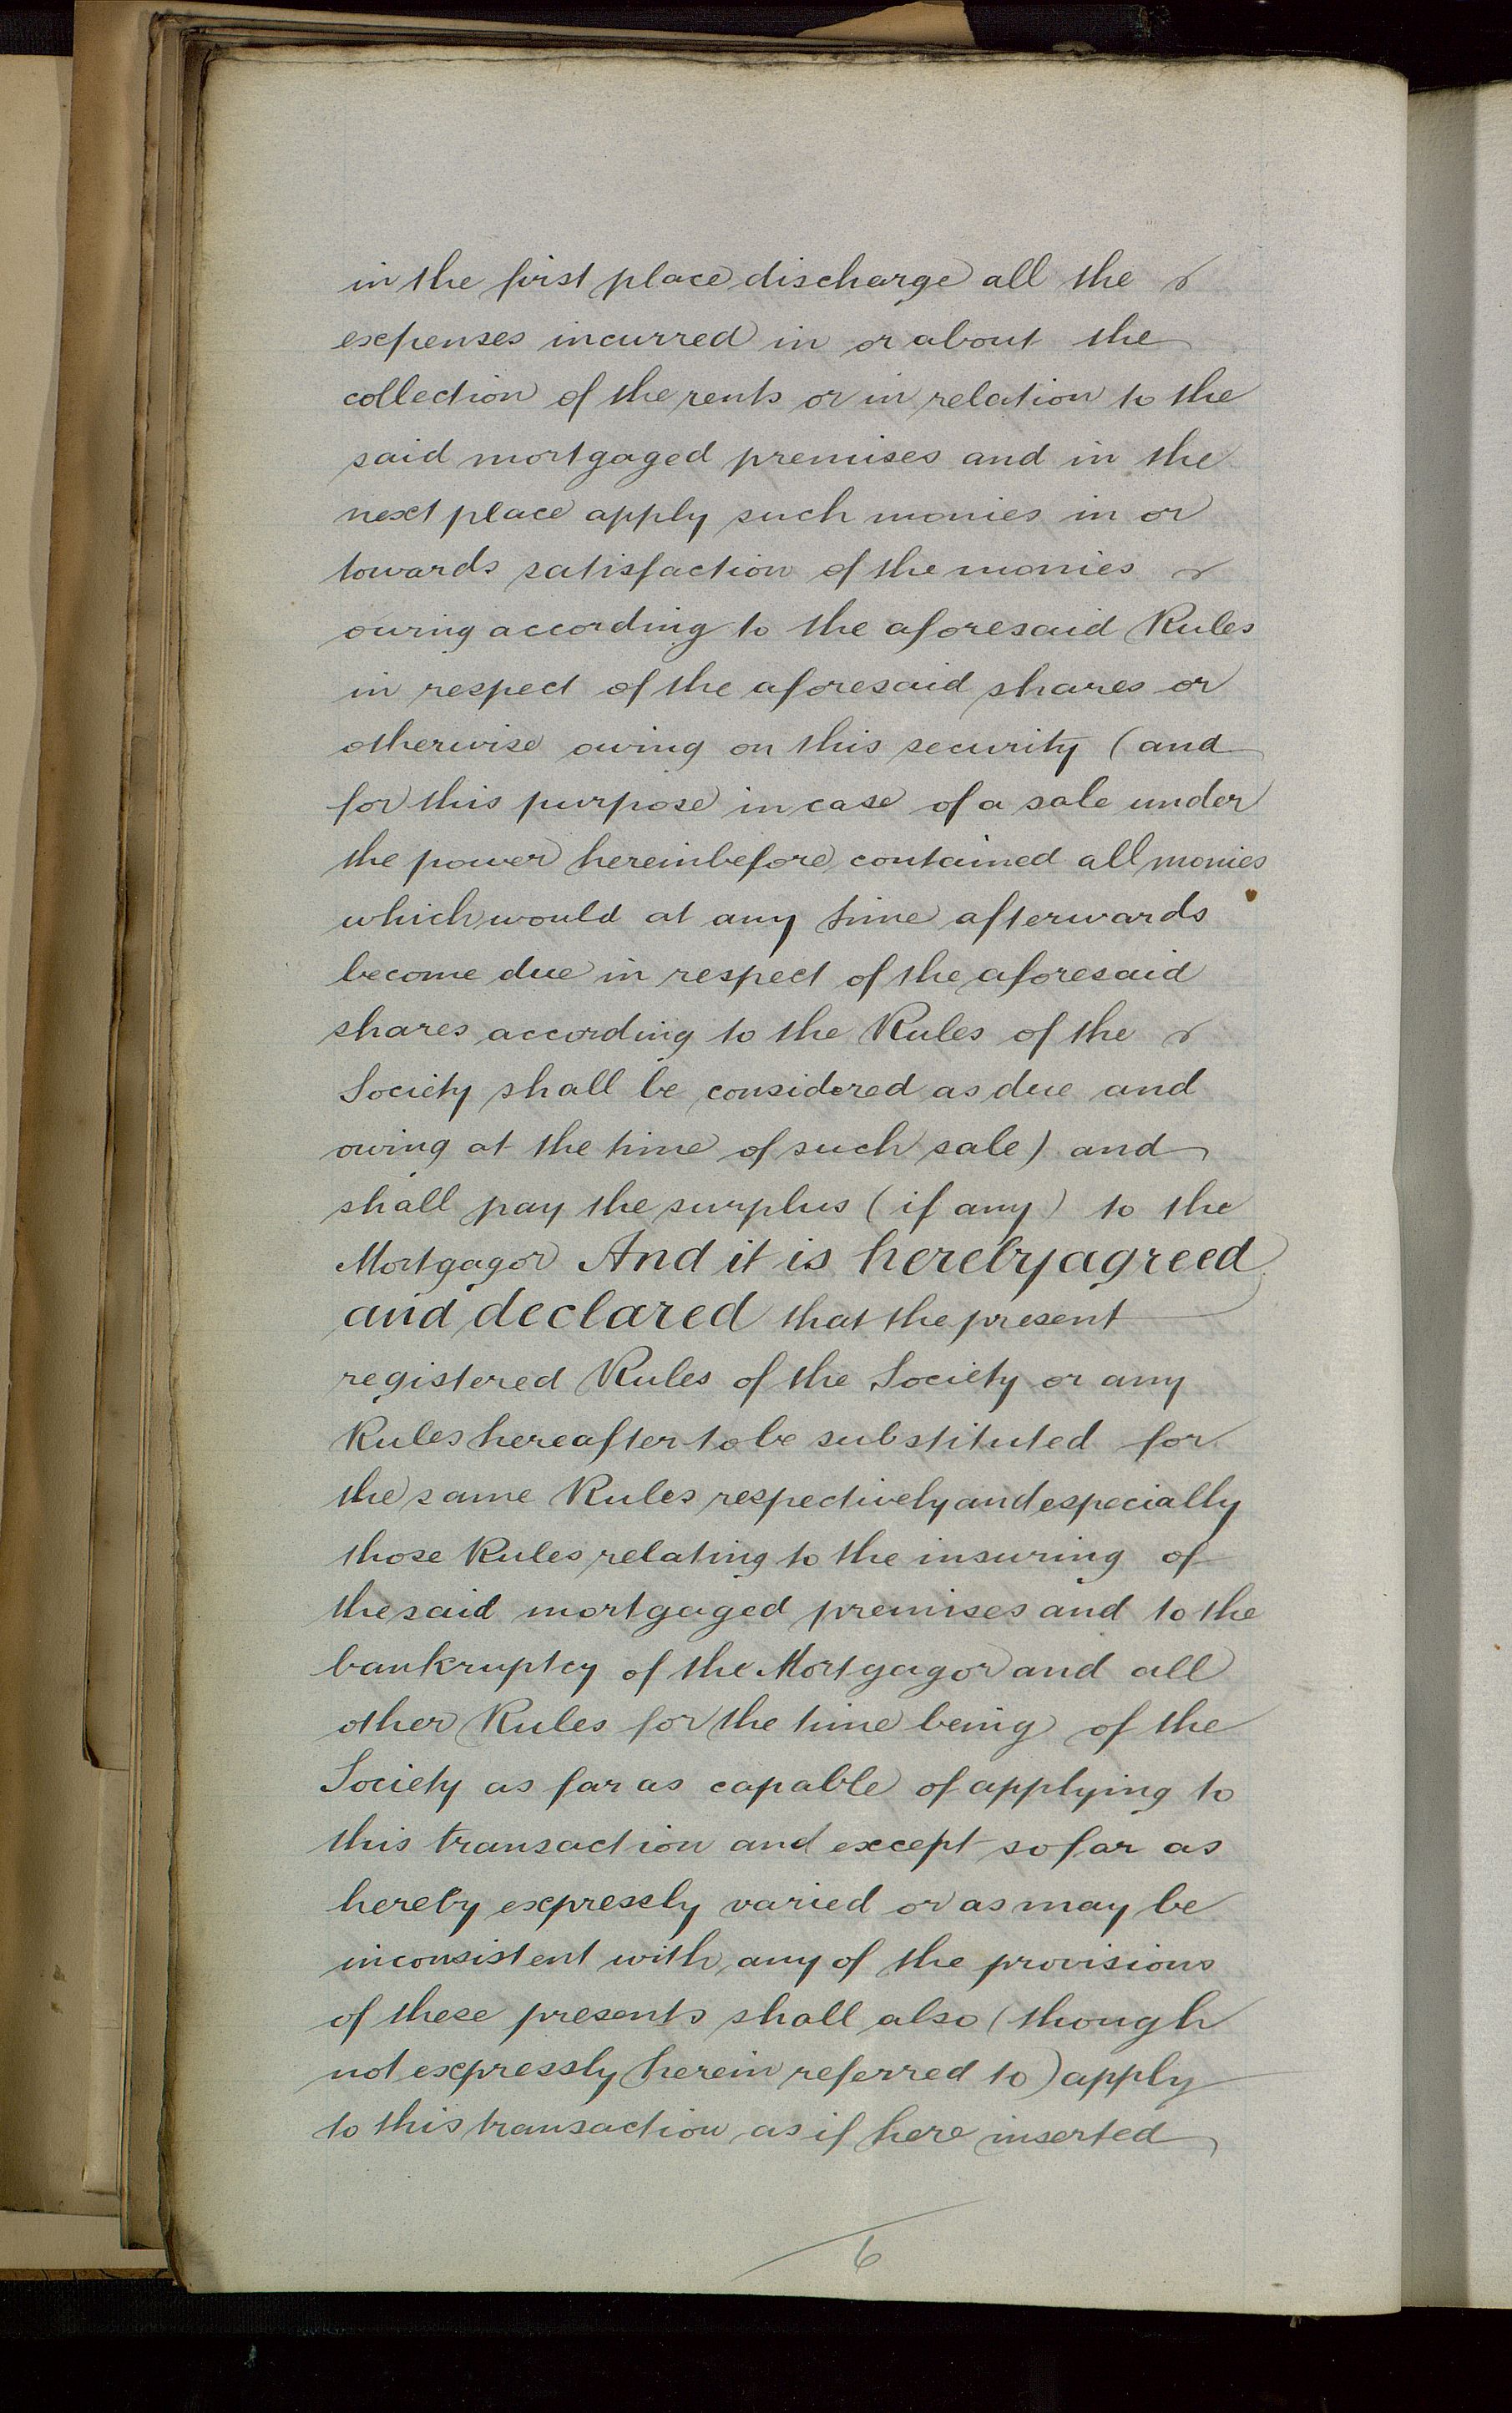 in the first place discharge all the
expenses incurred in or about the
collection of the rents or in relation to the
said mortgaged premises and in the
next place apply such monies in or
towards satisfaction of the monies
owing according to the aforesaid Rules
in respect of the aforesaid shares or
otherwise owing on this security (and
for this purpose in case of a sale under
the power hereinbefore contained all monies
which would at any time afterwards
become due in respect of the aforesaid
shares according to the Rules of the
Society shall be considered as due and
owing at the time of such sale) and
shall pay the surplus (if any) to the
Mortgagor And it is hereby agreed
and declared that the present
registered Rules of the Society or any
Rules hereafter to be substituted for
the same Rules respectively and especially
those Rules relating to the insuring of
the said mortgaged premises and to the
bankruptcy of the Mortgagor and all
other Rules for the time being of the
Society as far as capable of applying to
this transaction and except so far as
hereby expressly varied or as may be
inconsistent with any of the provisions
of these presents shall also (though
not expressly herein referred to) apply
to this transaction as if here inserted
6